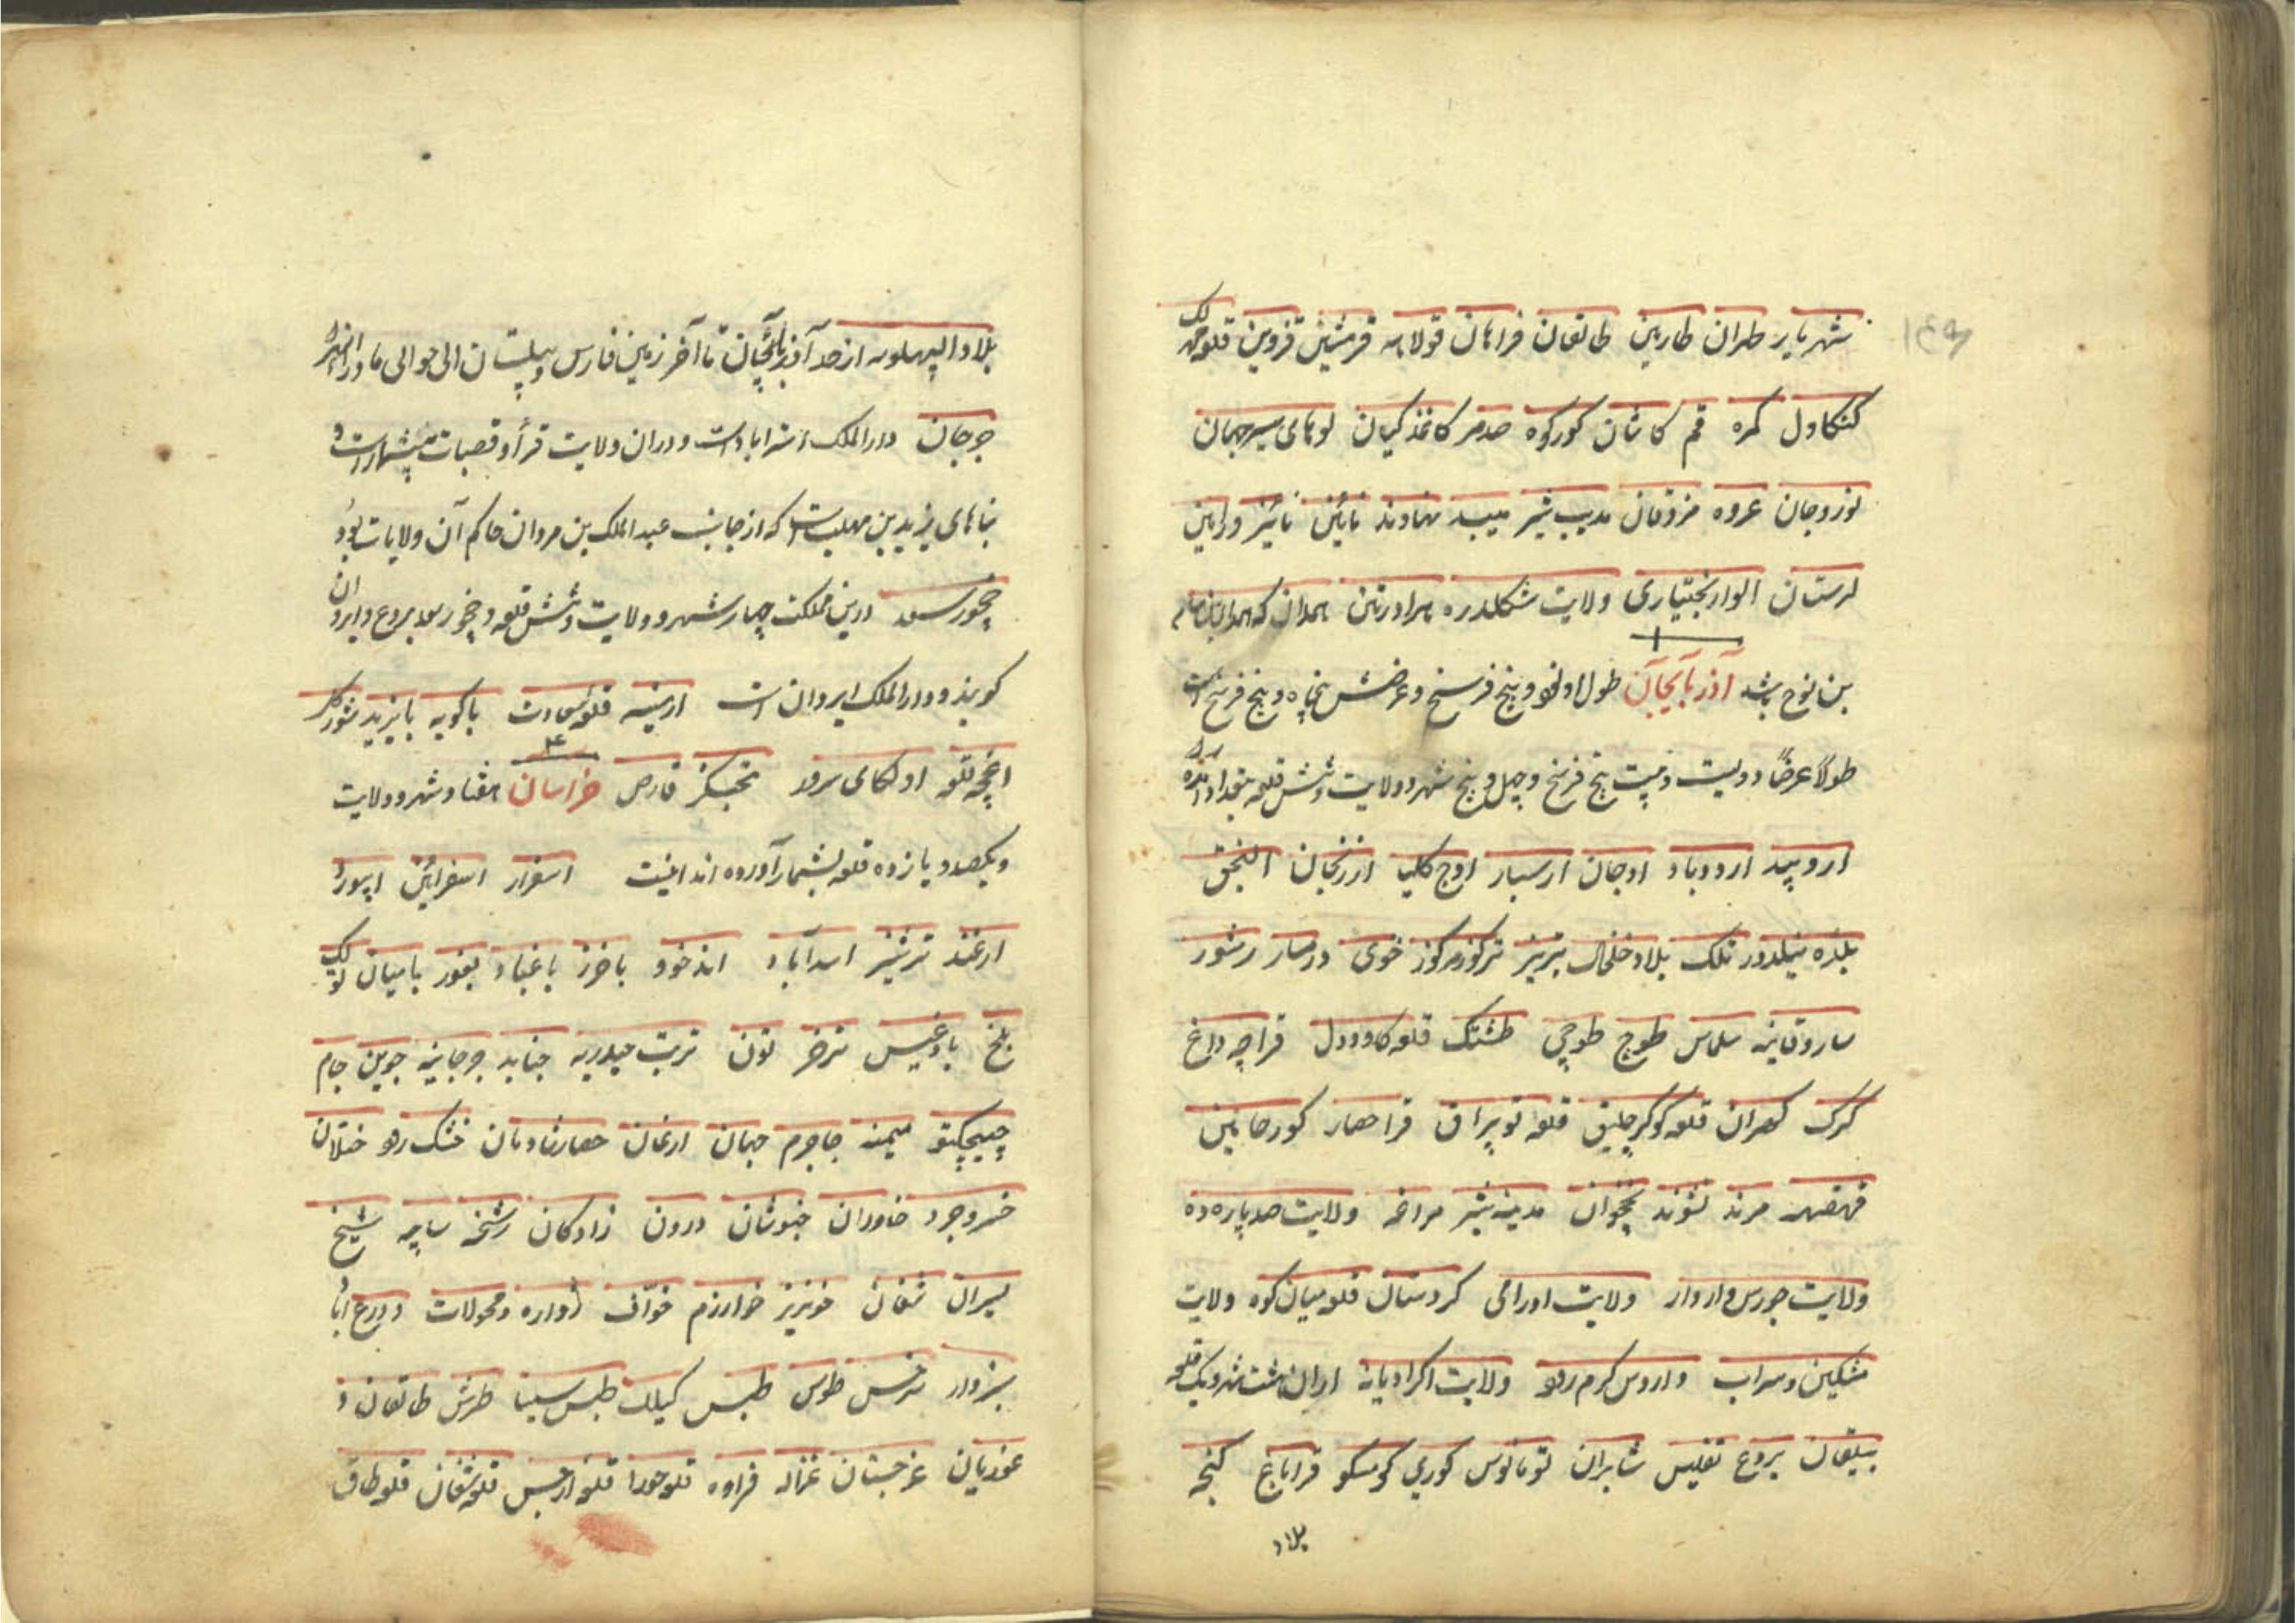 ۱۴۹
شهریار طهران طارین طالقان فراهان قولابه قرمشین قزوین قلعه
کنکاول کمره قم کاشان کورکوه صدمر کاغذ کیان لوهای سیرجهان
نوزوجان عروه مزدقان مدیب شیر میبد نهاوند نائین نائیز ورامین
لرستان الوار بختیاری ولایت شکلدره برادرتین همدان که همدان بن سام
بن نوح باشد آذربایجان طول او نود و پنج فرسخ و عرضش پنجاه و پنج فرسخ است
طولاً عرضاً دویست و بیست پنج فرسخ و چهل و پنج شهر و ولایت و شش قلعه بغداد
اردوبید اردوباد اوجان ارسبار اوج کلیا ارزنجان النجق
بلده نیلدور تلک بلاد خلخال تبریز ترکوز مرکوز خوی درمسار رمشور
ساروقاینه سلماس طوج طوجی طشتک قلعه کاوودل قراچه داغ
کرک کهران قلعه کوکرچلیق قلعه توپراق قراحصار کورحانین
قهقهه مرند نشوند نخجوان مدینه شیز مراغه ولایت صدپاره ده
ولایت جورس واردار ولایت اورامی کردستان قلعه میان کوه ولایت
مشکین و سراب واروس کرم رود ولایت اکراد یانه اران هشت شهر و یک قلعه
بیلقان بردع تفلیس شابران لومانوس کوری کومسکو قراباغ کنجه
بلاد
بلاد البهلویه از حد آذربایجان تا آخر زمین فارس و سیستان الی حوالی ماوراءالنهر
جرجان دارالملک استراباد است و دران ولایت قرأ و قصبات بیشمار است و
بناهای یزید بن مهلب است که از جانب عبد الملک بن مروان حاکم آن ولایات بود
چخورسعد درین مملکت چهار شهر و ولایت و شش قلعه و چخور سعد بردع و ایروان
کویند و دارالملک ایروان است ارمنیه قلعه سعادت باکویه بایزید شورکل
اخچه قلعه اولکای سرولا نخبکز قارص خراسان هفتاد شهر و ولایت
و یکصد و یازده قلعه بشمار آورده اند اینست اسفزار اسفرائین ابیورد
ارغند ترشیز اسدآباد اندخود باخرز باغباد بغور بامیان لولک
بلخ بادغیس ترخز تون تربت حیدریه جنابد جرجانیه جوین جام
چیچکتو میمنه جاجرم جهان ارغان حصار شادمان خشک رود ختلان
خسروجرد خاوران خبوشان درون زادکان رشخه ساچه شیخ
بسیران شغان خونریز خوارزم خوّاف زواره و محولات و درع
سبزوار سرخس طوس طبس کیلک طبس سینا طرش طالقان و
غوریان غرجستان غزاله فراوه قلعه حورا قلعه ارجیس قلعه شغان قلعه طاق